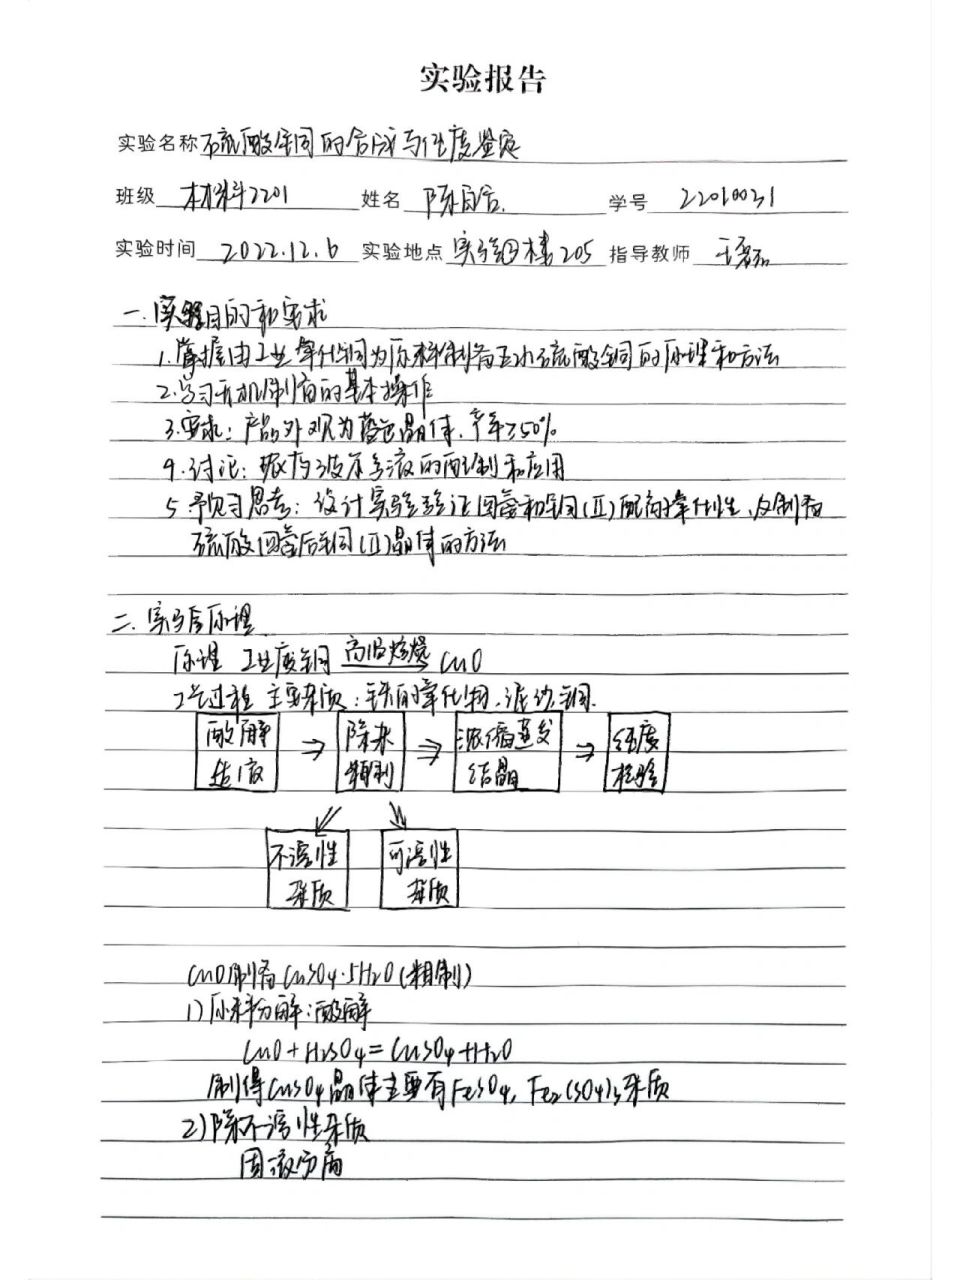 实验报告
实验名称 硫酸铜的合成与纯度鉴定
班级 材料2201 姓名 陈自信 学号 22010031
实验时间 2022.12.6 实验地点 实验楼205 指导教师 王磊
一.实验目的和要求
1.掌握由工业氧化铜为原料制备五水硫酸铜的原理和方法
2.学习无机制备的基本操作
3.要求:产品外观为蓝色晶体,产率≥50%
4.讨论:液的配制和应用
5.预习思考:设计实验验证四氨和铜(II)配离子氧化性,及制备
硫酸四氨合铜(II)晶体的方法
二.实验原理
原理 工业废铜 高温灼烧 CuO
工艺过程 主要杂质:铁的氧化物,泥沙
酸解 ⇒ 除杂 ⇒ 浓缩蒸发 ⇒ 纯度
精制 结晶 检验
不溶性 可溶性
杂质 杂质
CuO制备CuSO4·5H2O(粗制)
1)原料分解:酸解
CuO+H2SO4=CuSO4+H2O
制得CuSO4晶体主要有FeSO4,Fe2(SO4)3杂质
2)除不溶性杂质
固液分离